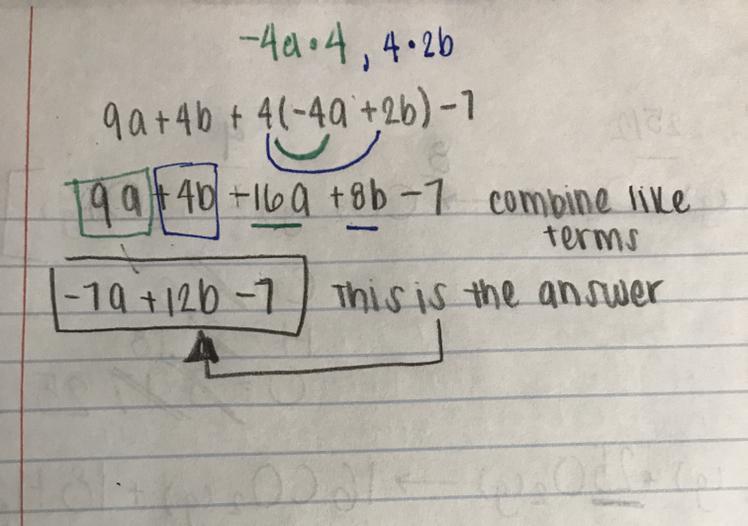 -4a•4, 4•2b
9a+4b + 4(-4a+2b)-7
9a +4b +16a +8b -7 combine like
terms
-7a +12b -7 This is the answer